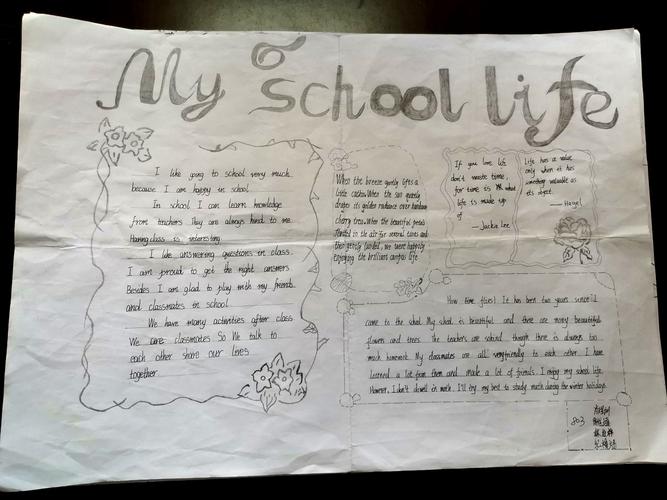 My school life
I like going to school very much
because I am happy in school.
In school I can learn knowledge
from teachers They are always kind to me
Having class is interesting
I like answering questions in class.
I am proud to get the right answers
Besides I am glad to play with my friends
and classmates in school
We have many activities after class
We are classmates So We talk to
each other share our lives
together
When the breeze gently lifts a
little cushion When the sun quietly
drapes its golden radiance over
cherry tree. When the beautiful petals
in the air for several times and
then gently landed, we were happily
enjoying the brilliant campus life
If you love life
don't waste time,
for time is what
life is made up
of
— Jackie Lee
Life has a value
only when it has
something valuable as
its object.
— Hegel
How time flies! It has been two years since I
came to the school. My school is beautiful and there are many beautiful
flowers and trees. The teachers are though there is always too
much homework. My classmates are all veryfriendly to each other. I have
learned a lot from them and make a lot of friends. I enjoy my school life.
However, I don't dowell in math. I'll try my best to study math during the winter holidays.
803